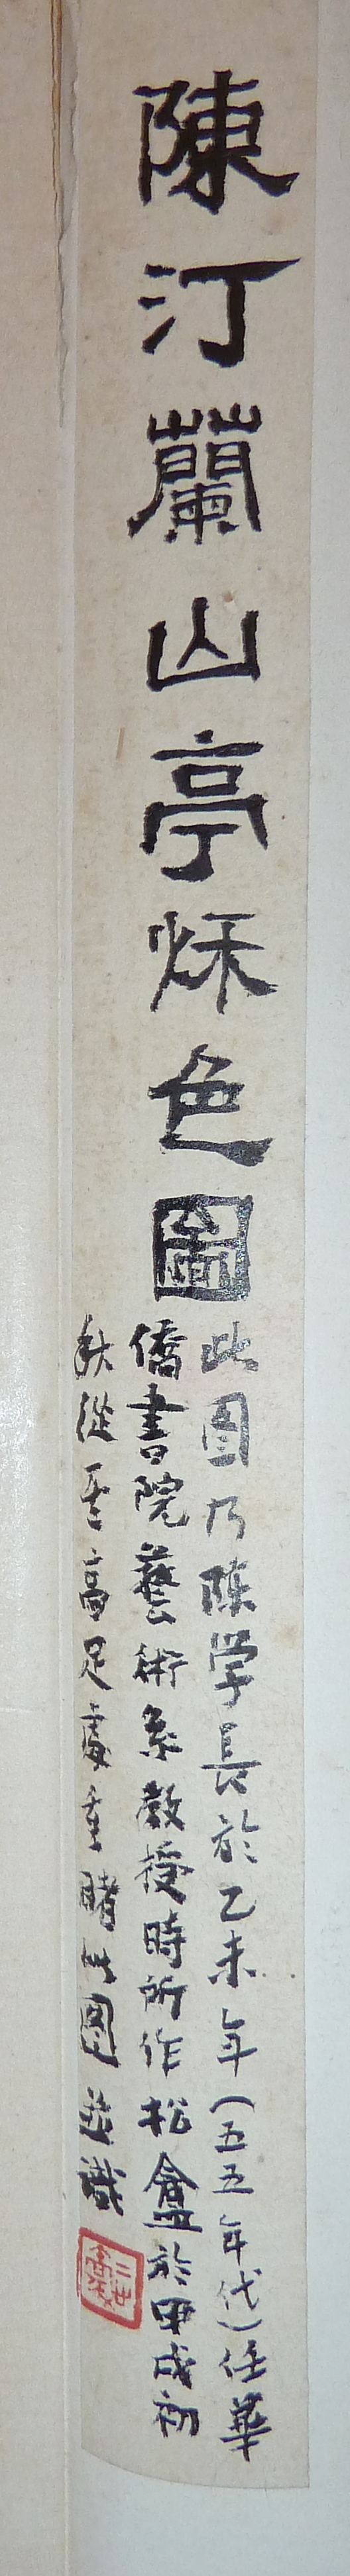 陳汀蘭山亭秌色圖
此图乃陈学長於乙未年(五五年代)任華
僑書院藝術系教授時所作松盦於甲戌初
秋從其高足處重睹此图並識